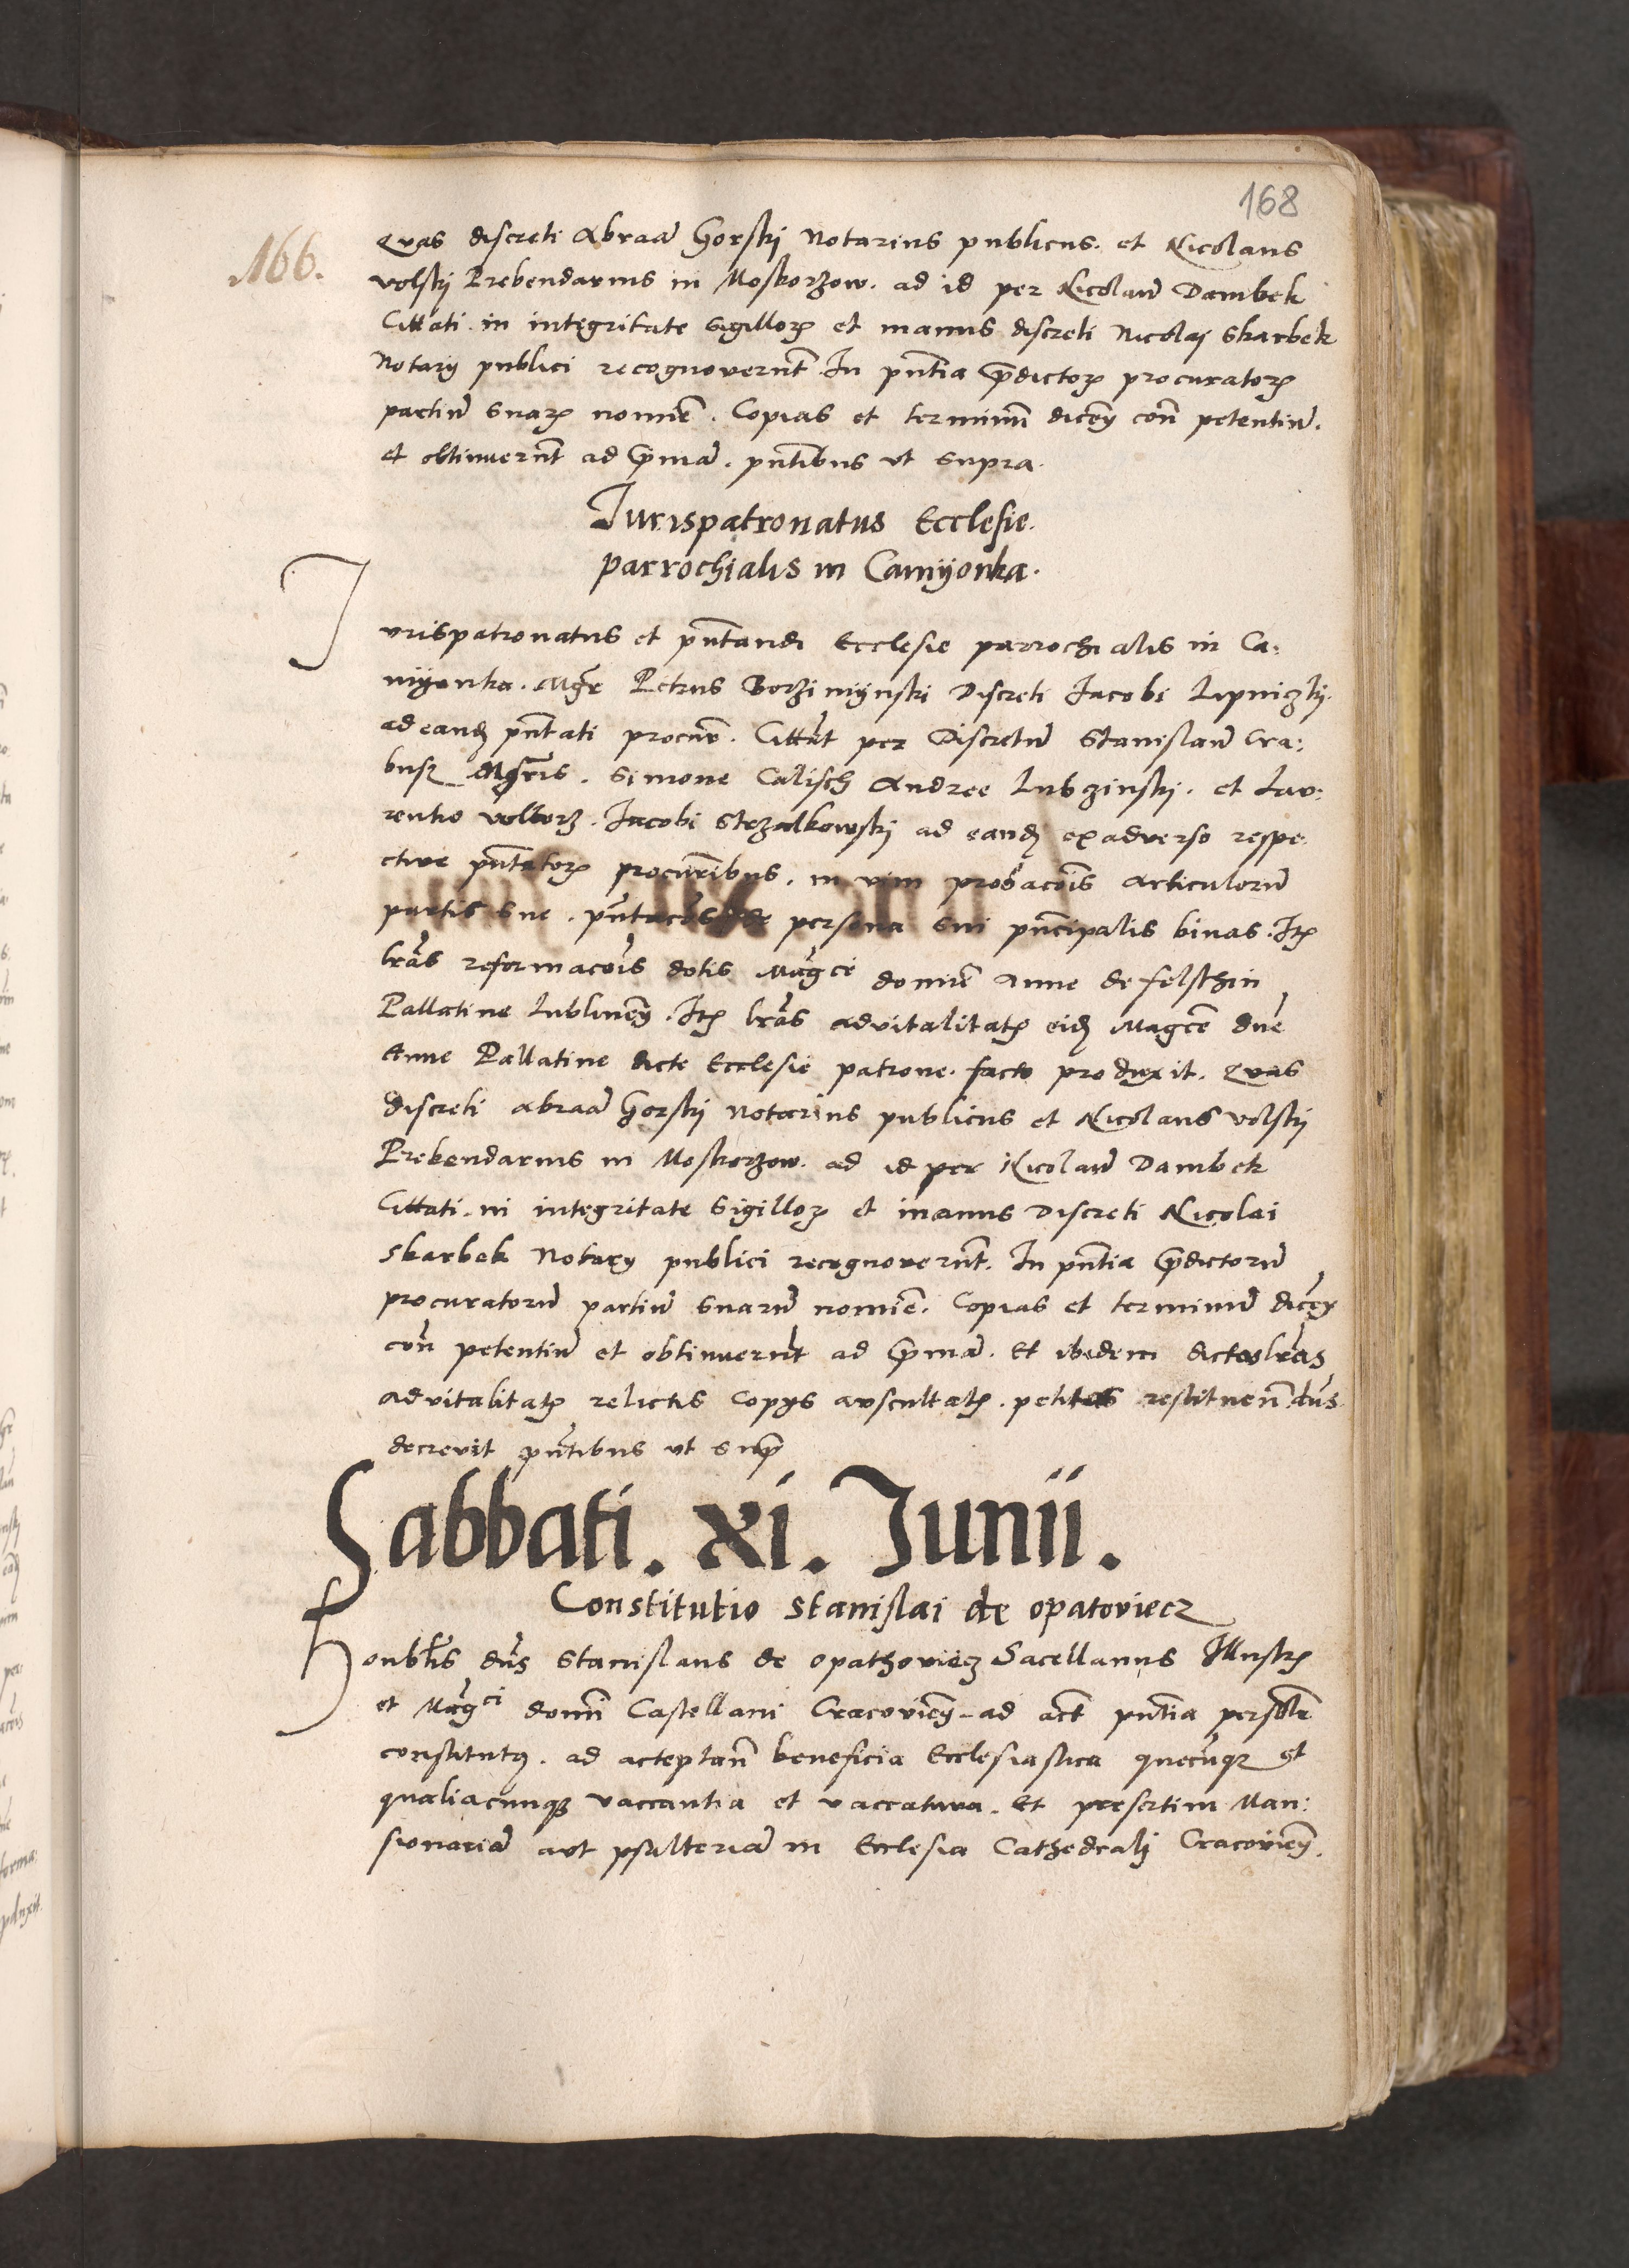 168
166.
Quas discreti Abraã Gorskj Notarius publicus. et Nicolaus
volskj Prebendarius in Moskorzow. ad id per Nicolaũ Dambek
Cittati. in integritate sigilloꝝ et manus discreti Nicolaj Skarbek
Notarij publici recognoverũt. In pñtia p̃dictoꝝ procuratoꝝ
partiũ suaꝝ nomĩe. Copias et terminũ diceñ con̄ petentiũ.
et obtinuerũt ad p̃mã. pñtibus ut supra.
Jurispatronatus Ecclesie.
parrochialis in Camyonka.
Jurispatronatus et pñtandi Ecclesie parrochialis in Ca:
myonka. Mgr̃ Petrus Borzimijnski Discreti Jacobi Lipniczkj.
ad eandꝫ pñtati procur̃. Cittãt per Discretũ Stanislaũ Cra:
busꝫ Mgr̃is. Simone Calisch Andree Lubzinskj. et Lau:
rentio Jacobi Strzalkowskj ad eandꝫ ex adverso respe:
ctive pñtatoꝝ procur̃ibus. in vim probac̃ois articulorũ
partis sue. persona sui prĩcipalis binas. Itꝫ
lr̃as reformac̃ois dotis Mag̃ce domĩe Anne de felsthin
Pallatine Lublineñ. Itꝫ lr̃as advitalitatꝫ eidꝫ Magc̃e dñe
Anne Pallatine dicte Ecclesie patrone. facto produxit. Quas
discreti abraã Gorskj notarius publicus et Nicolaus volskj
Prebendarius in Moskorzow. ad id per Nicolaũ Dambek
Cittati. in integritate sigilloꝝ et manus Discreti Nicolai
Skarbek Notarij publici recognoverũt. In pñtia p̃dictorũ
procuratorũ partiũ suarũ nomĩe. Copias et terminũ diceñ
con̄ petentiũ et obtinuerũt ad p̃mã. Et ibidem dictas lr̃as
advitalitatꝫ relictis copijs auscultatꝫ. petitas restituen̄ dñs
decrevit pñtibus ut sup̃
Sabbati. xi. Junii.
Constitutio Stanislai de opatoviecz
Honorablis dñs Stanislaus de opathoviecz Sacellanus Illustrꝫ
et Mag̃ci domĩ Castellani Cracovieñ. ad act̃ pñtia persoĩlr̃
constitutꝰ. ad acceptan̄ beneficia Ecclesiastica quecũqꝫ et
qualiacunqꝫ vaccantia et vaccatura. Et presertim Man:
sionariã aut psalteriã in Ecclesia Cathedralj Cracovieñ.